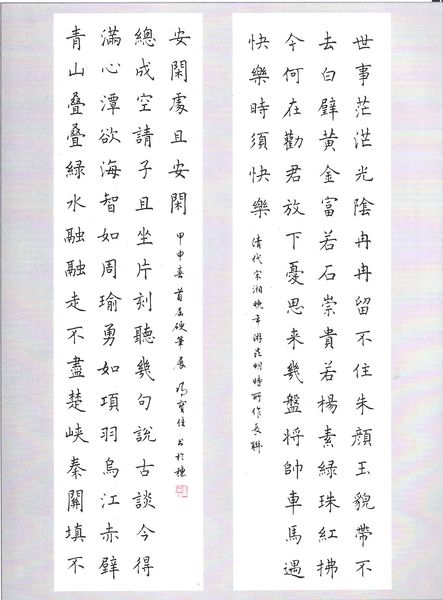 世事茫茫光陰冉冉留不住朱顏玉貌帶不
去白璧黃金富若石崇貴若楊素綠珠紅拂
今何在勸君放下憂思来幾盤将帥車馬遇
快樂時須快樂
清代宋湘晚年游昆明時所作長聯
青山叠叠綠水融融走不盡楚峽秦關填不
滿心潭欲海智如周瑜勇如項羽烏江赤壁
總成空請子且坐片刻聽幾句說古談今得
安閑處且安閑
甲申春首届硬筆展馮寶佳書於穗